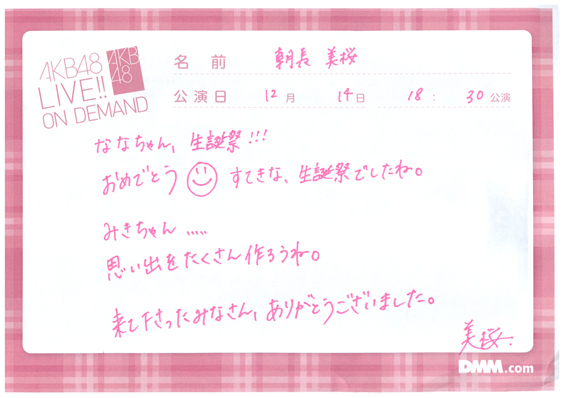 AKB48
LIVE!!
ON DEMAND
AKB
48
名前 朝長 美桜
公演日 12月 14日 18:30公演
ななちゃん、生誕祭!!!
おめでとう すてきな、生誕祭でしたね。
みきちゃん.....
思い出をたくさん作ろうね。
来て下さったみなさん、ありがとうございました。
美桜.
DMM.com